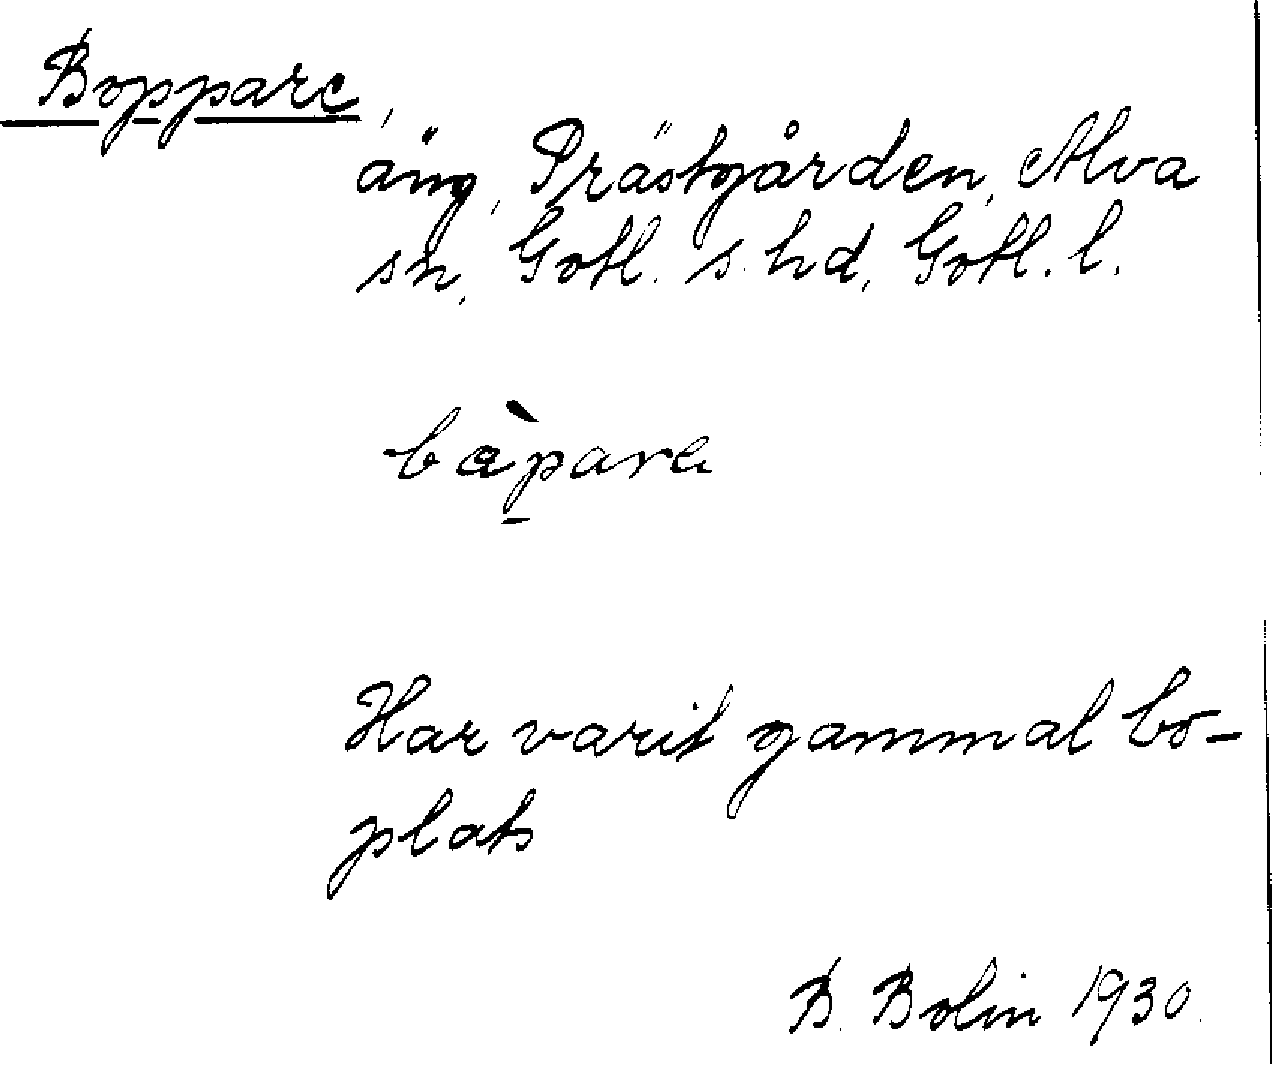 Boppare,
äng, Prästgården, Alva
sn, Gotl. s. hd, Gotl. l.
bàpara
Har varit gammal bo-
plats
B. Bolin 1930.